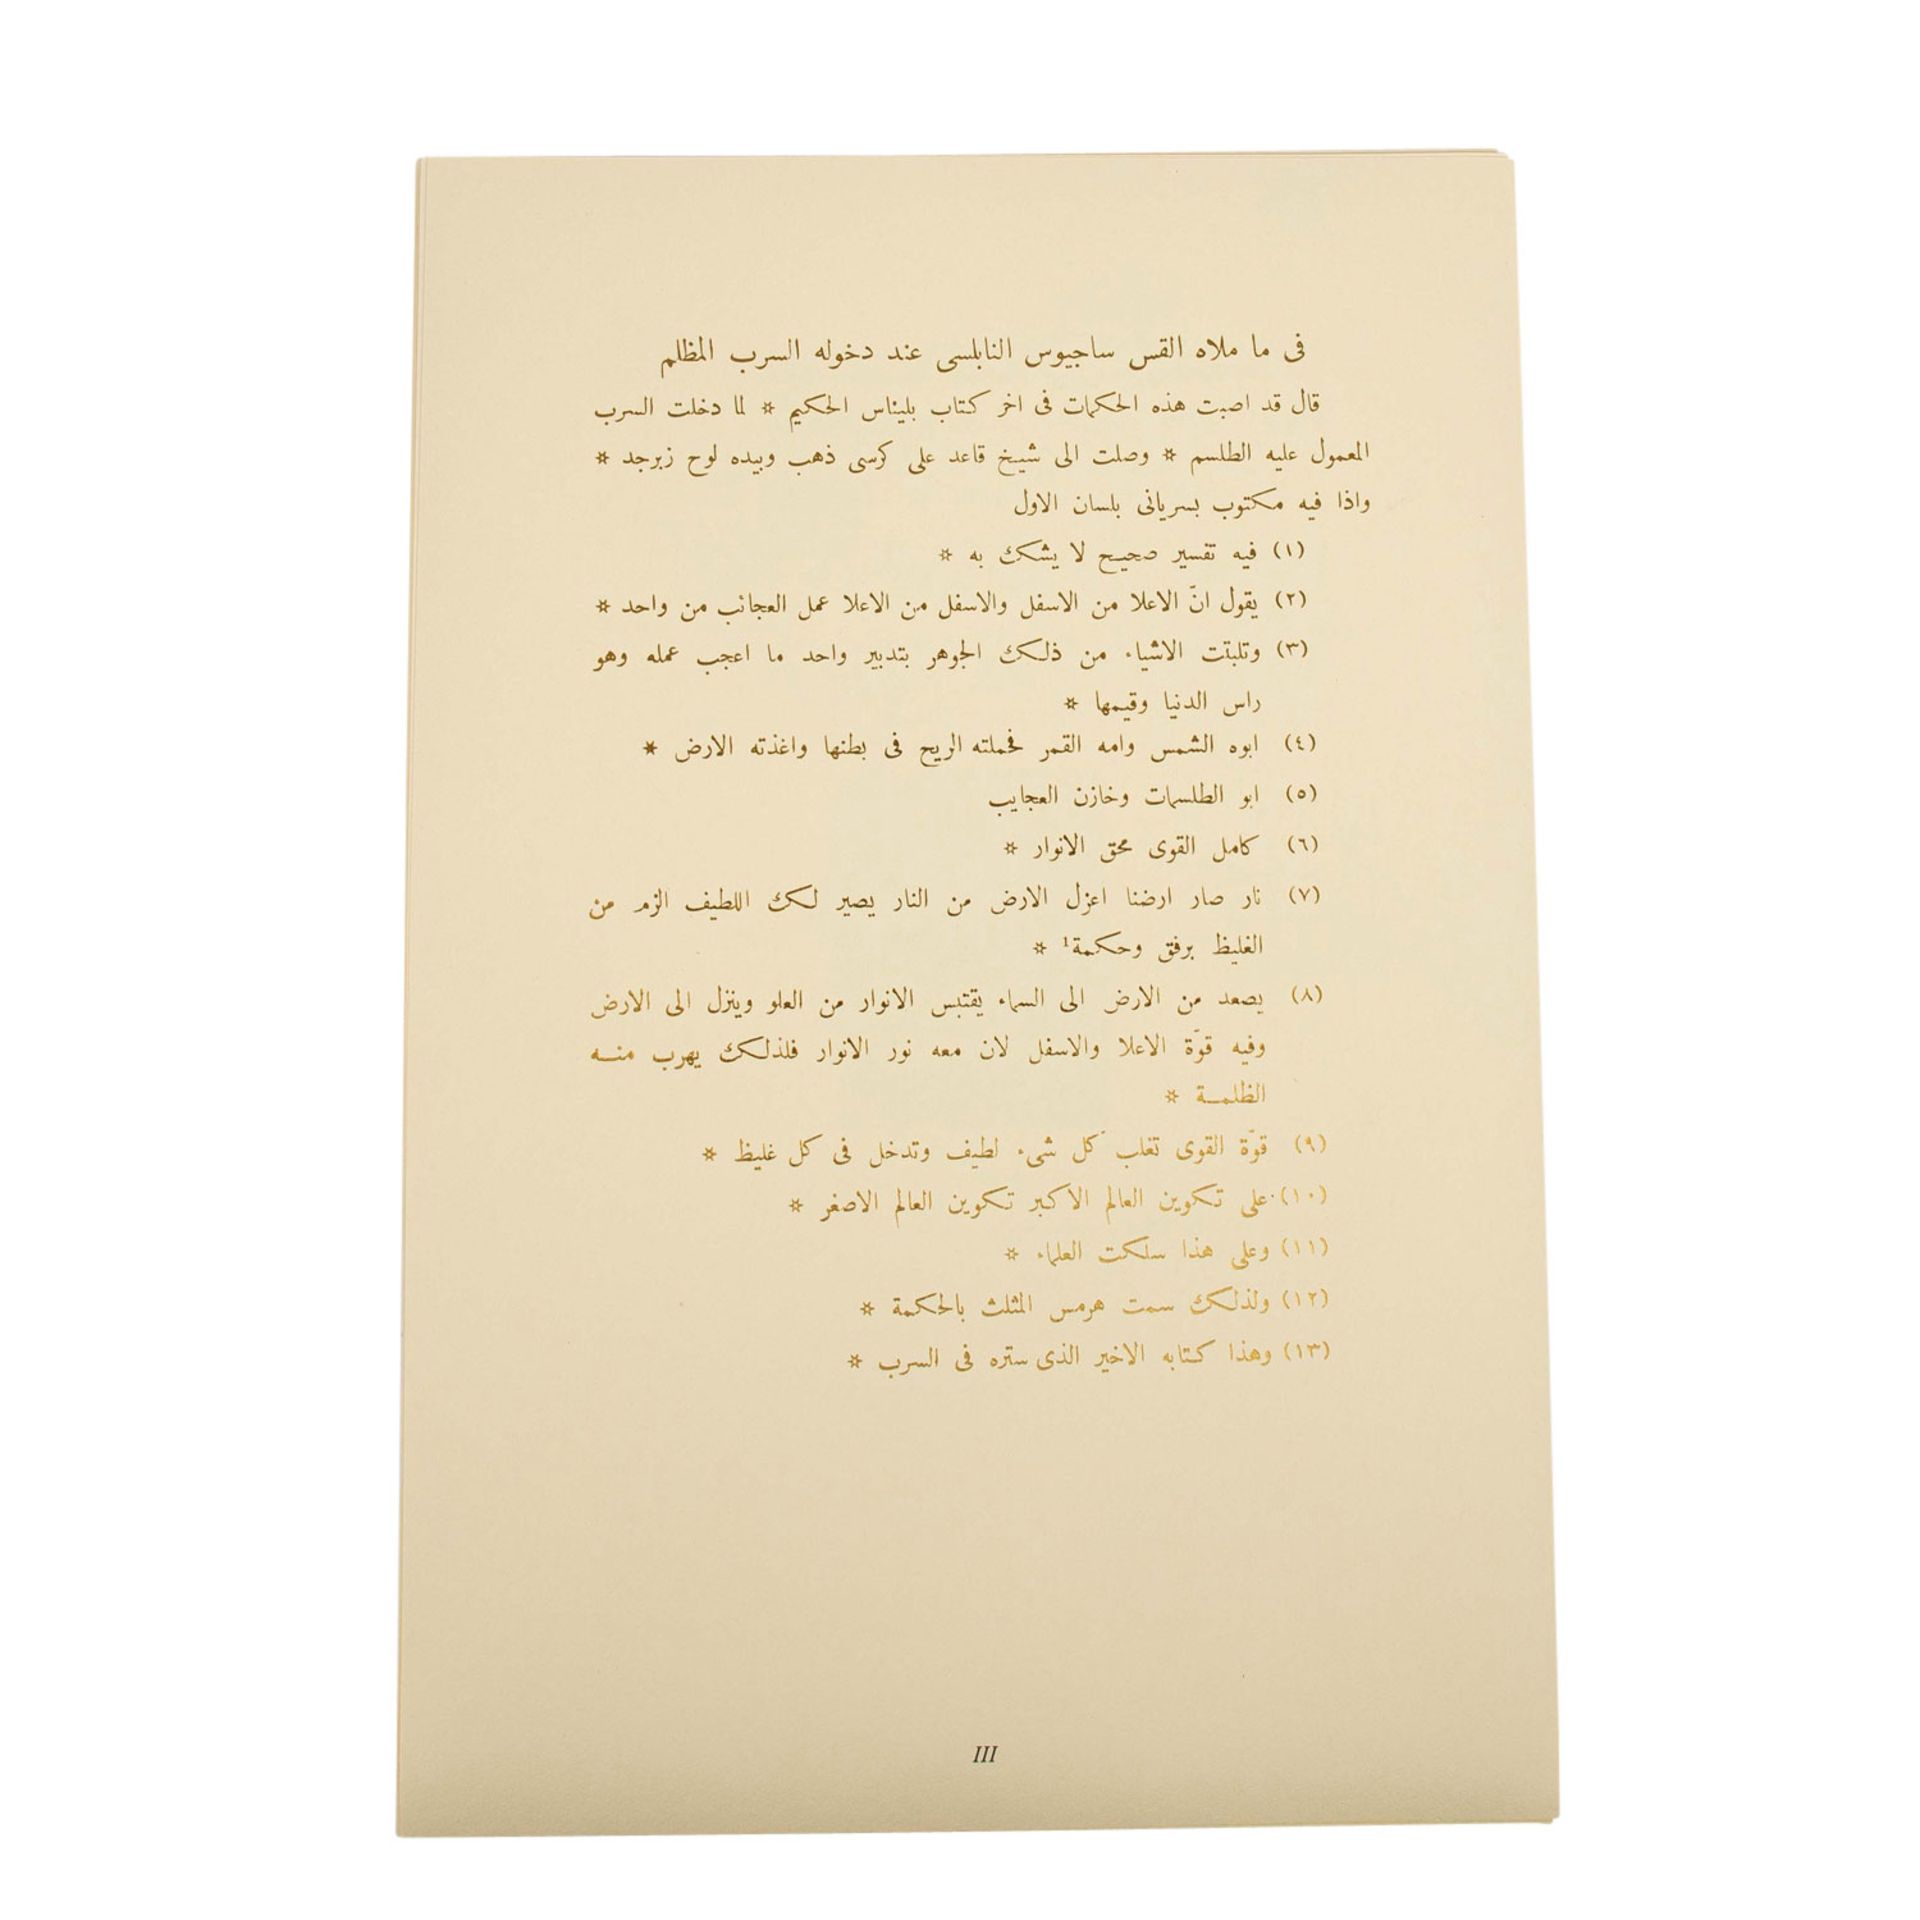 فى ما ملاه القس ساجيوس النابلسى عند دخوله السرب المظلم
قال قد اصبت هذه الحكمات فى اخر كتاب بليناس الحكيم * لما دخلت السرب
المعمول عليه الطلسم * وصلت الى شيخ قاعد على كرسى ذهب وبيده لوح زبرجد *
واذا فيه مكتوب بسريانى بلسان الاول
(١) فيه تفسير صحيح لا يشك به *
(٢) يقول انّ الاعلا من الاسفل والاسفل من الاعلا عمل العجائب من واحد *
(٣) وتلبتت الاشياء من ذلك الجوهر بتدبير واحد ما اعجب عمله وهو
راس الدنيا وقيمها *
(٤) ابوه الشمس وامه القمر فحملته الريح فى بطنها واغذته الارض *
(٥) ابو الطلسمات وخازن العجايب
(٦) كامل القوى محق الانوار *
(٧) نار صار ارضنا اعزل الارض من النار يصير لك اللطيف الزم من
الغليظ برفق وحكمة¹ *
(٨) يصعد من الارض الى السماء يقتبس الانوار من العلو وينزل الى الارض
وفيه قوّة الاعلا والاسفل لان معه نور الانوار فلذلك يهرب منه
الظلمة *
(٩) قوّة القوى تغلب كل شىء لطيف وتدخل فى كل غليظ *
(١٠) على تكوين العالم الاكبر تكوين العالم الاصغر *
(١١) وعلى هذا سلكت العلماء *
(١٢) ولذلك سمت هرمس المثلث بالحكمة *
(١٣) وهذا كتابه الاخير الذى ستره فى السرب *
III